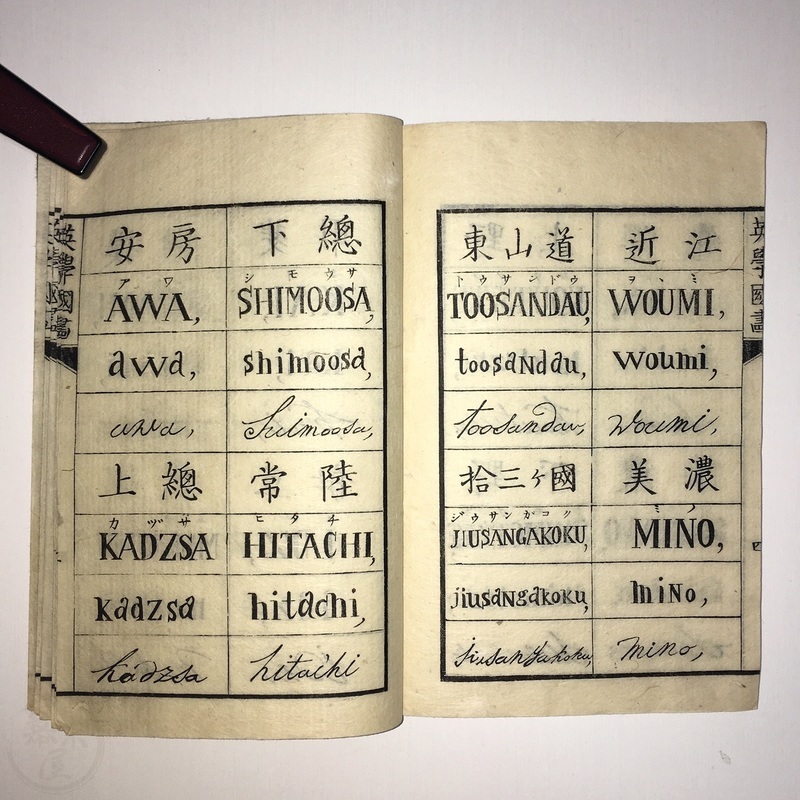 東山道
トウサンドウ
TOOSANDAU,
toosaNdau,
toosandau,
拾三ケ國
ジウサンガコク
JIUSANGAKOKU,
jiusaNgakoku,
jiusangakoku,
近江
ヲヽミ
WOUMI,
woumi,
Woumi,
美濃
ミノ
MINO,
miNo,
mino,
安房
アワ
AWA,
awa,
awa,
上總
カヅサ
KADZSA
kadzsa
kadzsa
下總
シモウサ
SHIMOOSA,
shimoosa,
Shimoosa,
常陸
ヒタチ
HITACHI,
hitachi,
hitachi
英學
四
英學國畵